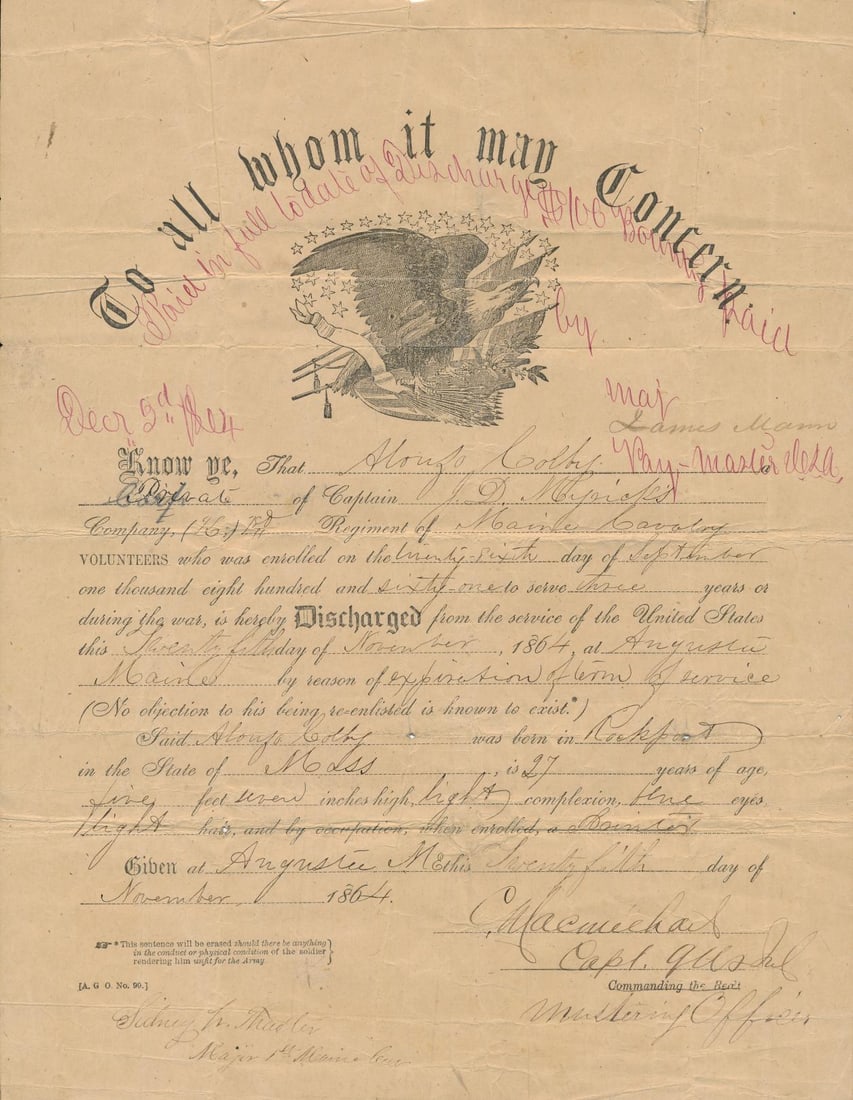 To all whom it may Concern.
Paid in full to date of Discharge $100 Bounty paid
by
Decr 2d 1864
Maj
James Mann
Pay-Master U.S.A.
Know ye, That Alonzo Colby a
Private of Captain J. D. Myrick's
Company, (K.) 1st Regiment of Maine Cavalry
VOLUNTEERS who was enrolled on the twenty-sixth day of September
one thousand eight hundred and sixty-one to serve three years or
during the war, is hereby Discharged from the service of the United States
this Twenty fifth day of November, 1864, at Augusta
Maine by reason of expiration of term of service
(No objection to his being re-enlisted is known to exist.*)
Said Alonzo Colby was born in Rockport
in the State of Mass, is 27 years of age,
five feet seven inches high, light complexion, blue eyes
light hair, and by occupation, when enrolled, a
Given at Augusta Me this Twenty fifth day of
November, 1864.
C. Macmichael
Capt. 9 U.S. Inf.
*This sentence will be erased should there be anything
in the conduct or physical condition of the soldier
rendering him unfit for the Army.
Commanding the Reg't
[A. G O. No. 99.]
Mustering Officer
Sidney W. Thaxter
Major 1st Maine Cav